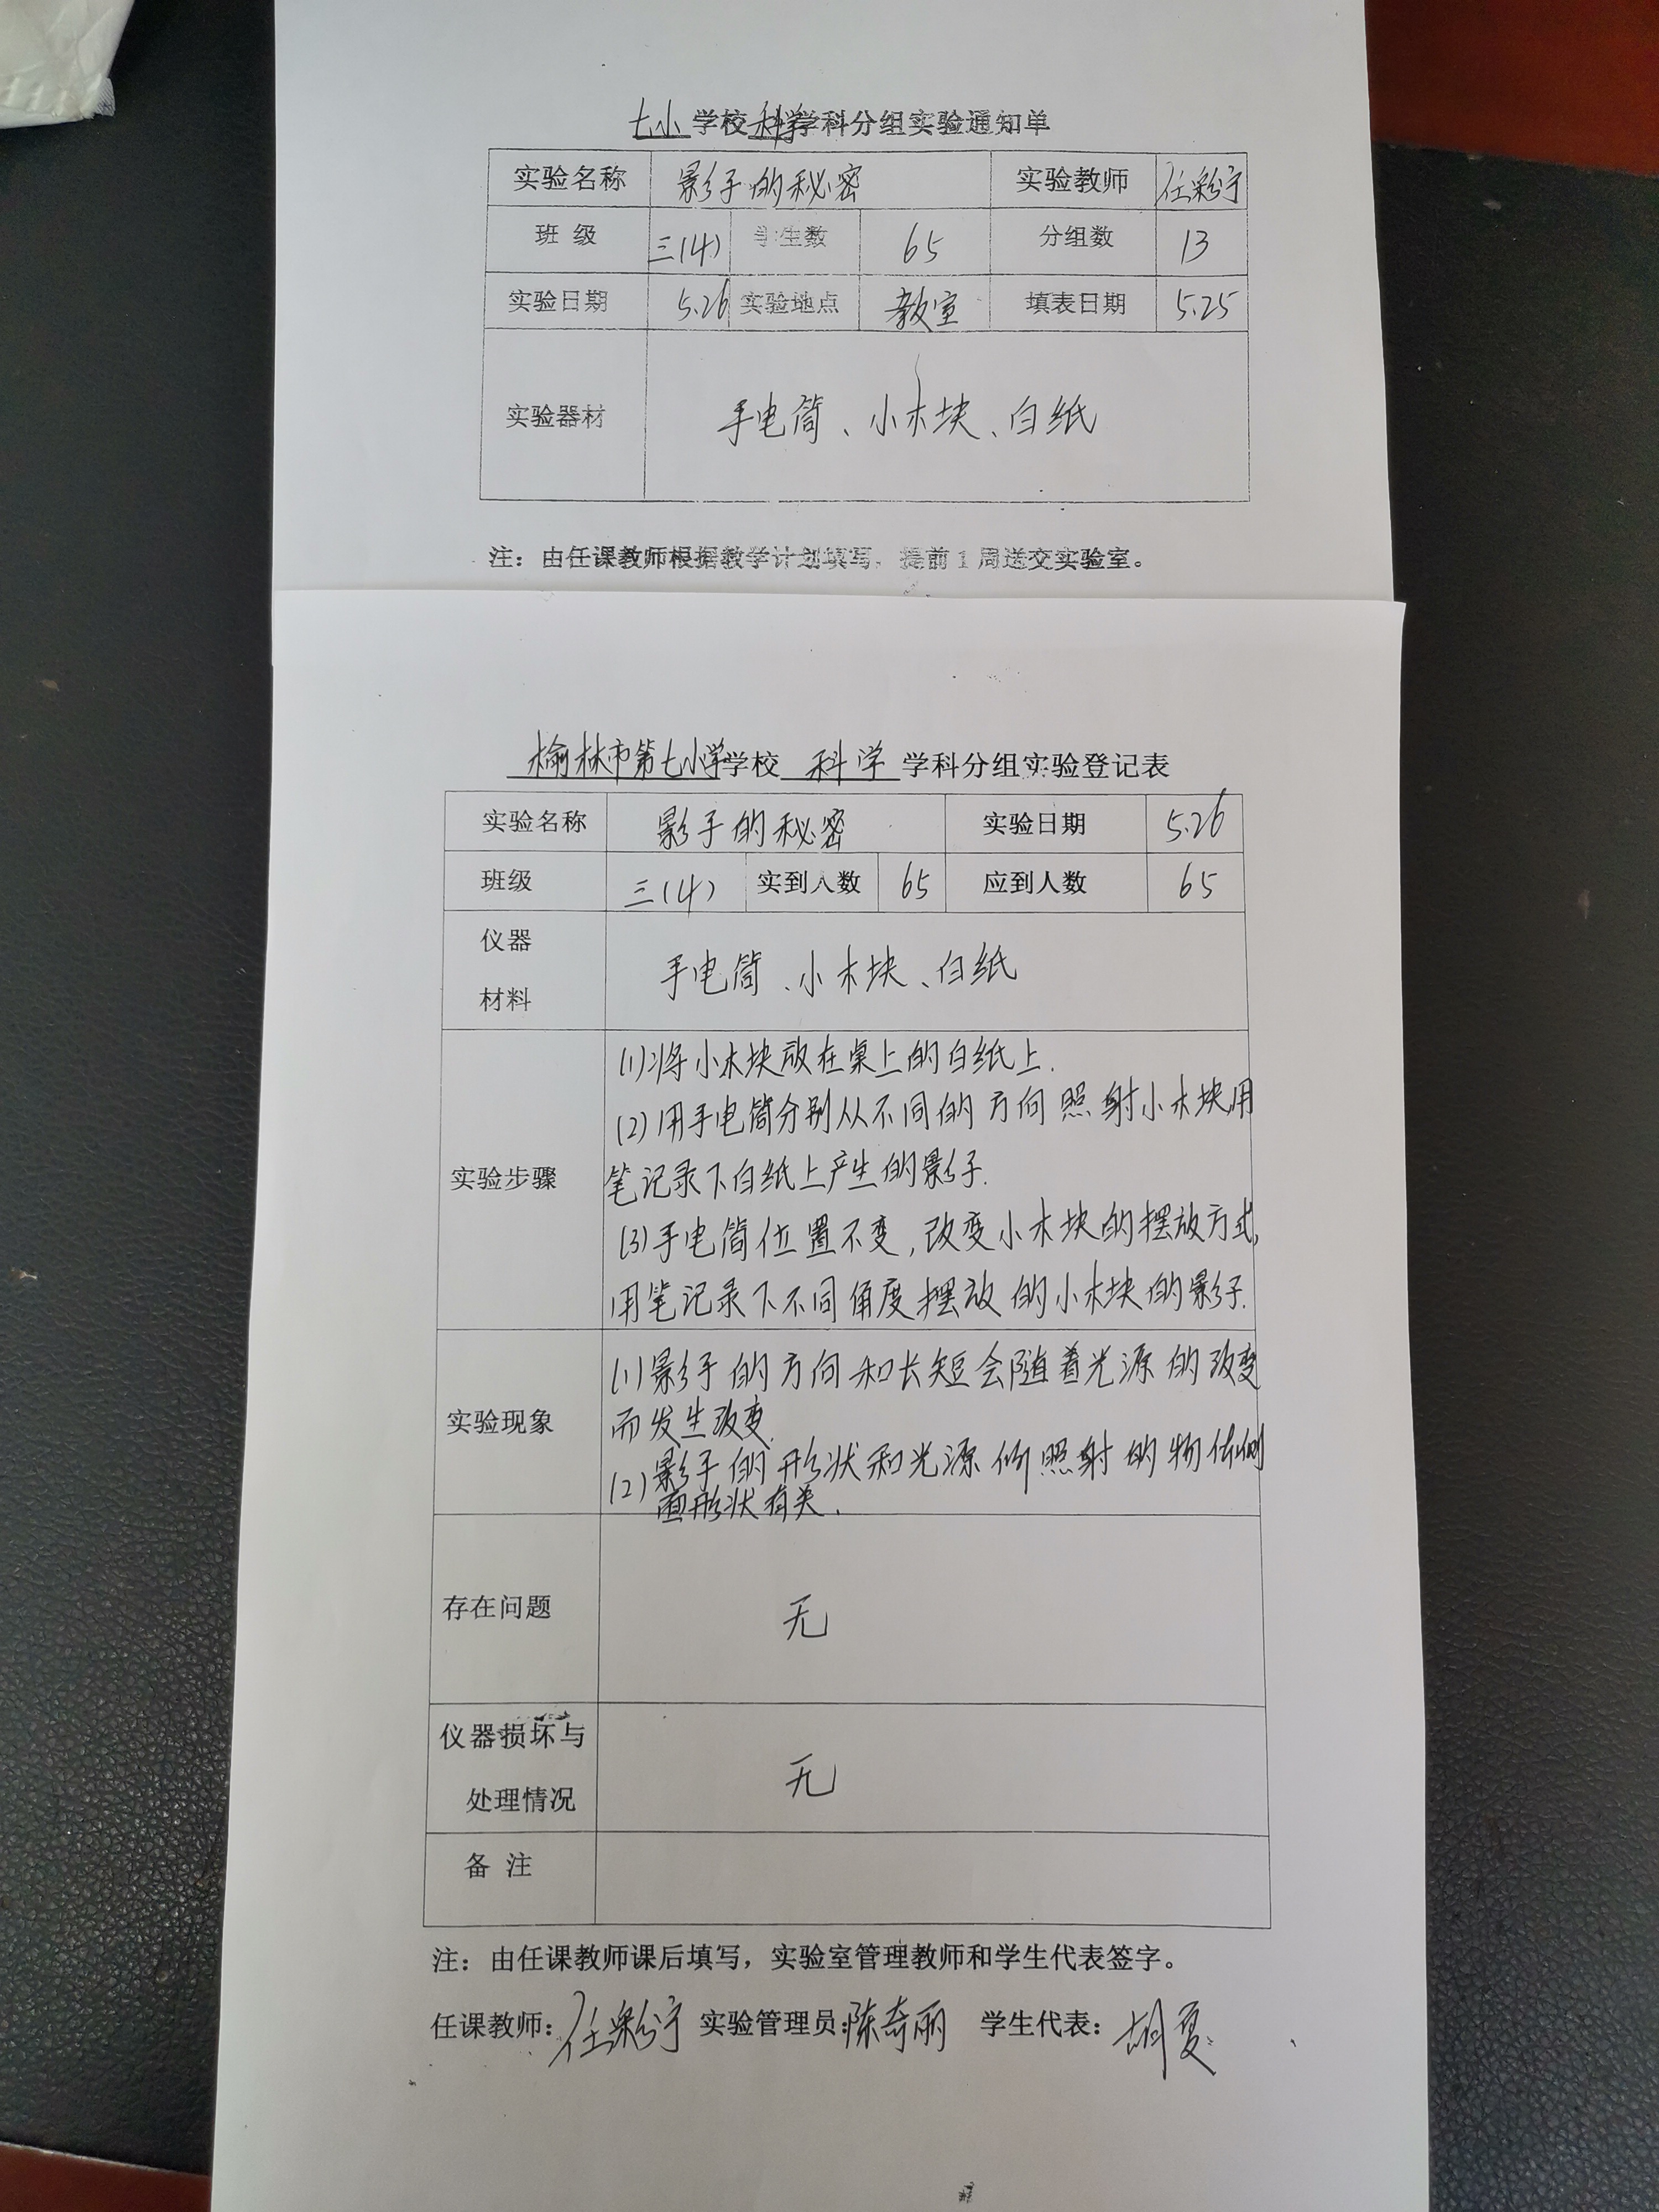 七小学校科学学科分组实验通知单
实验名称 影子的秘密 实验教师 任彩宁
班 级 三(4) 学生数 65 分组数 13
实验日期 5.26 实验地点 教室 填表日期 5.25
实验器材 手电筒、小木块、白纸
注：由任课教师根据教学计划填写，提前1周送交实验室。
榆林市第七小学学校 科学 学科分组实验登记表
实验名称 影子的秘密 实验日期 5.26
班级 三(4) 实到人数 65 应到人数 65
仪器
材料
手电筒、小木块、白纸
实验步骤
(1)将小木块放在桌上的白纸上.
(2)用手电筒分别从不同的方向照射小木块用
笔记录下白纸上产生的影子.
(3)手电筒位置不变,改变小木块的摆放方式,
用笔记录下不同角度摆放的小木块的影子.
实验现象
(1)影子的方向和长短会随着光源的改变
而发生改变.
(2)影子的形状和光源所照射的物体侧
面形状有关.
存在问题 无
仪器损坏与
处理情况
无
备 注
注：由任课教师课后填写，实验室管理教师和学生代表签字。
任课教师：任彩宁 实验管理员：陈奇丽 学生代表：胡夏